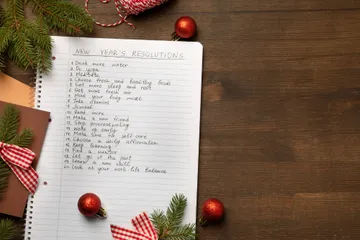 NEW YEAR'S RESOLUTIONS
1. Drink more water
2. Do yoga
3. Meditate
4. Choose fresh and healthy foods
5. Get more sleep and rest
6. Get more fresh air
7. Move your body more
8. Take vitamins
9. Journal
10. Read more
11. Make a new friend
12. Stop procrastinating
13. Wake up early
14. Make time for self-care
15. Choose a daily affirmation
16. Keep learning
17. Find a mentor
18. Let go of the past
19. Learn a new skill
20. Look at your work life balance